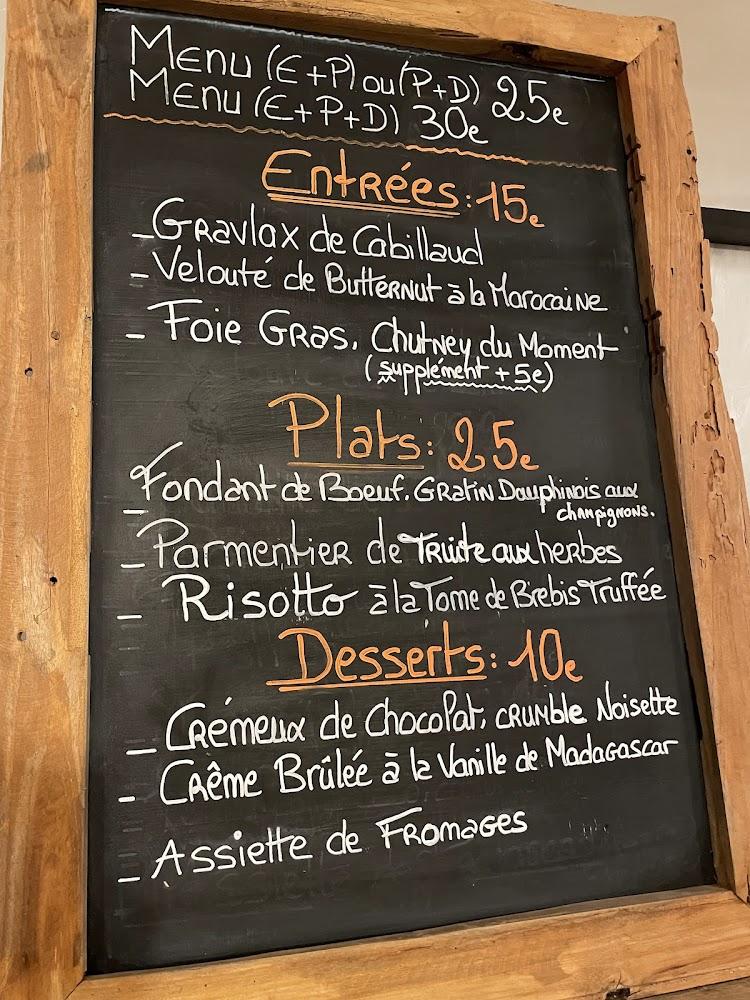 Menu (E+P) ou (P+D) 25e
Menu (E+P+D) 30e
Entrées: 15e
- Gravlax de Cabillaud
- Velouté de Butternut à la Marocaine
- Foie Gras, Chutney du Moment
(supplément + 5e)
Plats: 25e
- Fondant de Boeuf. Gratin Dauphinois aux
champignons.
- Parmentier de Truite aux herbes
- Risotto à la Tome de Brebis Truffée
Desserts: 10e
- Crémeux de Chocolat, crumble Noisette
- Crême Brûlée à la Vanille de Madagascar
- Assiette de Fromages